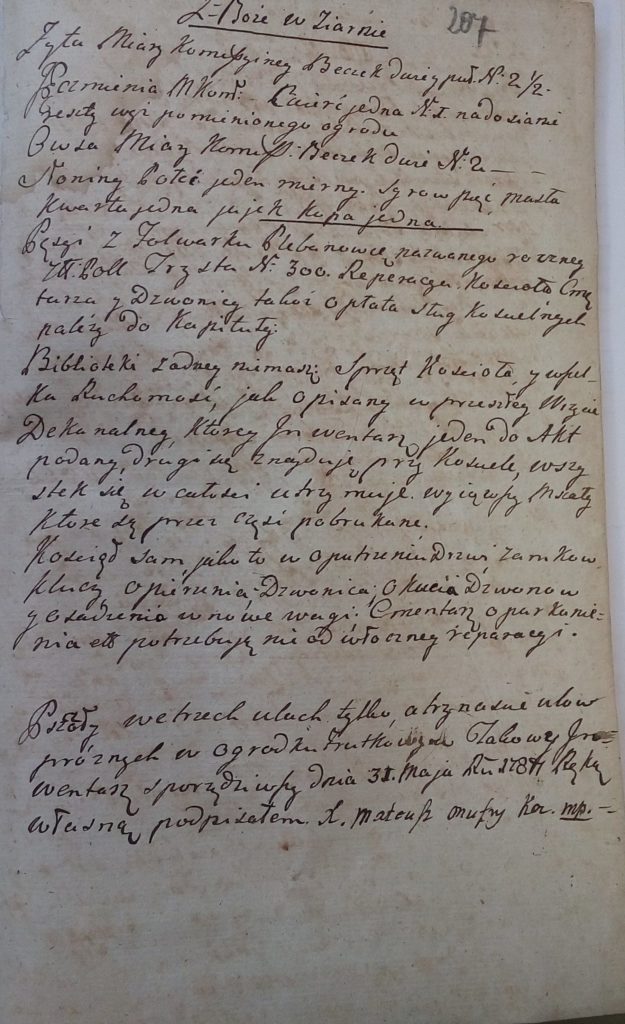 Z-Boże w Ziarnie
207
Żyta Miary Komissyiney Beczek dużey puł. N: 2 1/2.
Jęczmienia M Kom: - Cwierć jedna N 1. na dosianie
reszty wsi pomienionego ogrodu
Owsa Miary Komiss: Beczek duże N: 2 - -
Słoniny Połeć jeden mierny. Syrow pięć masła
Kwarta jedna jajek Kopa jedna.
Pęsyi z Folwarku Plebanowce nazwanego roczney
Złł: Poll Trzysta N: 300. Reperacya Kościoła Cmę
tarza y Dzwonicy takoż opłata sług Kościelnych
należy do Kapituły.
Biblioteki żadney niemasz. Sprzęt Kościoła, y wszel-
ka Ruchomość, jak opisany w przeszłey Wizycie
Dekanalney, Ktorey Inwentarz jeden do Akt
podany, drugi się znayduje przy Kościele, wszy
stek się w całości utrzymuje. wyiąwszy Mszały
Ktore są przez części pobrukane.
Kościoł sam jako to w opatrzeniu Drzwi zamkow
kluczy opierzenia Dzwonica; Okucia Dzwonow
y osadzenia w nowe wagi. Cmentarz oparkanie-
nia ett potrzebują nie odwłoczney reparacyi.
Pszczoły we trzech ulach tylko, a trzynaście ulow
prożnych w ogrodku Takowy In
wentarz sporządziwszy dnia 31. Maja Ręką
własną podpisałem. X. Mateusz Kan. mp. -